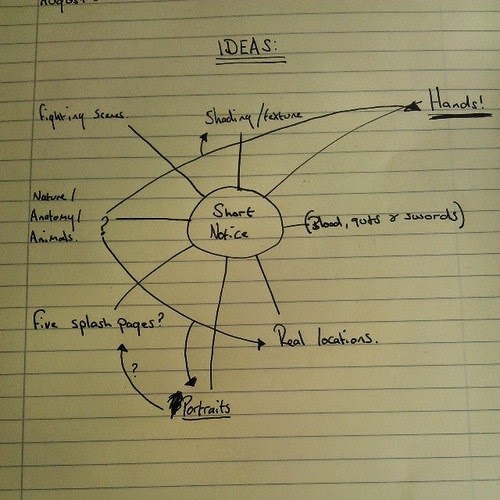 August
IDEAS:
Hands!
Fighting Scenes.
Shading/texture
Nature/
Anatomy/
Animals.
Short
Notice
(Blood, guts & swords)
Five splash pages?
Real locations.
?
Portraits